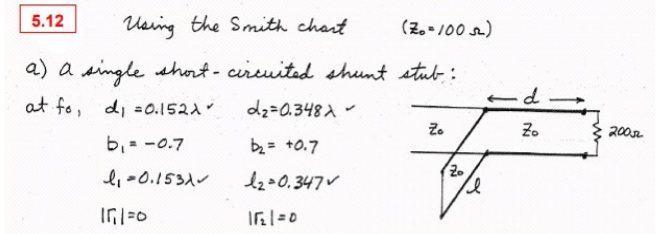 5.12 Using the Smith chart (Z₀=100 Ω)
a) a single short-circuited shunt stub:
at f₀, d₁ =0.152λ✓ d₂=0.348λ ✓
b₁ = -0.7 b₂ = +0.7
l₁ =0.153λ✓ l₂=0.347✓
|Γ₁|=0 |Γ₂|=0
← d →
Z₀ Z₀ 200Ω
Z₀ l